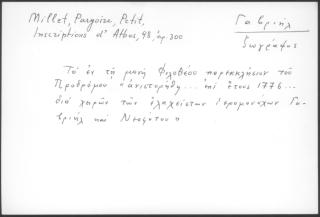 Millet, Pargoire, Petit,
Inscriptions d'Athos, 98, ἀρ. 300
Γαβριήλ
ζωγράφος
Τὸ ἐν τῇ μονῇ Φιλοθέου παρεκκλήσιον τοῦ
Προδρόμου "ἀνιστορήθη... ἐπὶ ἔτους 1776...
διὰ χειρῶν τῶν ἐλαχίστων ἱερομονάχων Γα-
βριὴλ καὶ